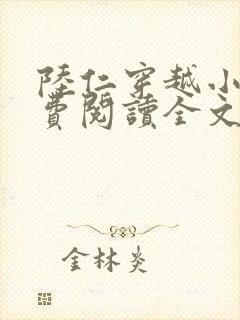 陸仁穿越小
費閱讀全文
金林炎